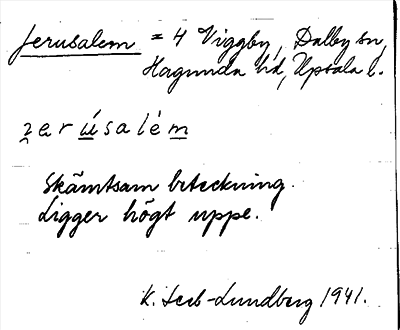 Jerusalem = 4 Viggby, Dalby sn,
Hagunda hd, Upsala l.
jerúsalém
Skämtsam beteckning.
Ligger högt uppe.
K. Leeb-Lundberg 1941.